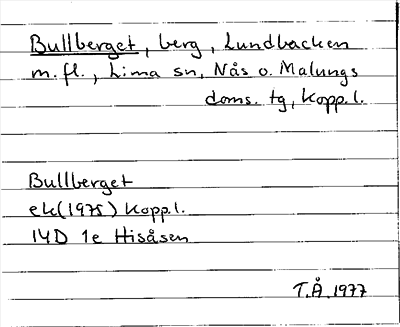 Bullberget, berg, Lundbacken
m.fl., Lima sn, Nås o. Malungs
doms. tg, Kopp.l.
Bullberget
ek(1975) Kopp.l.
14D 1e Hisåsen
T.Å. 1977